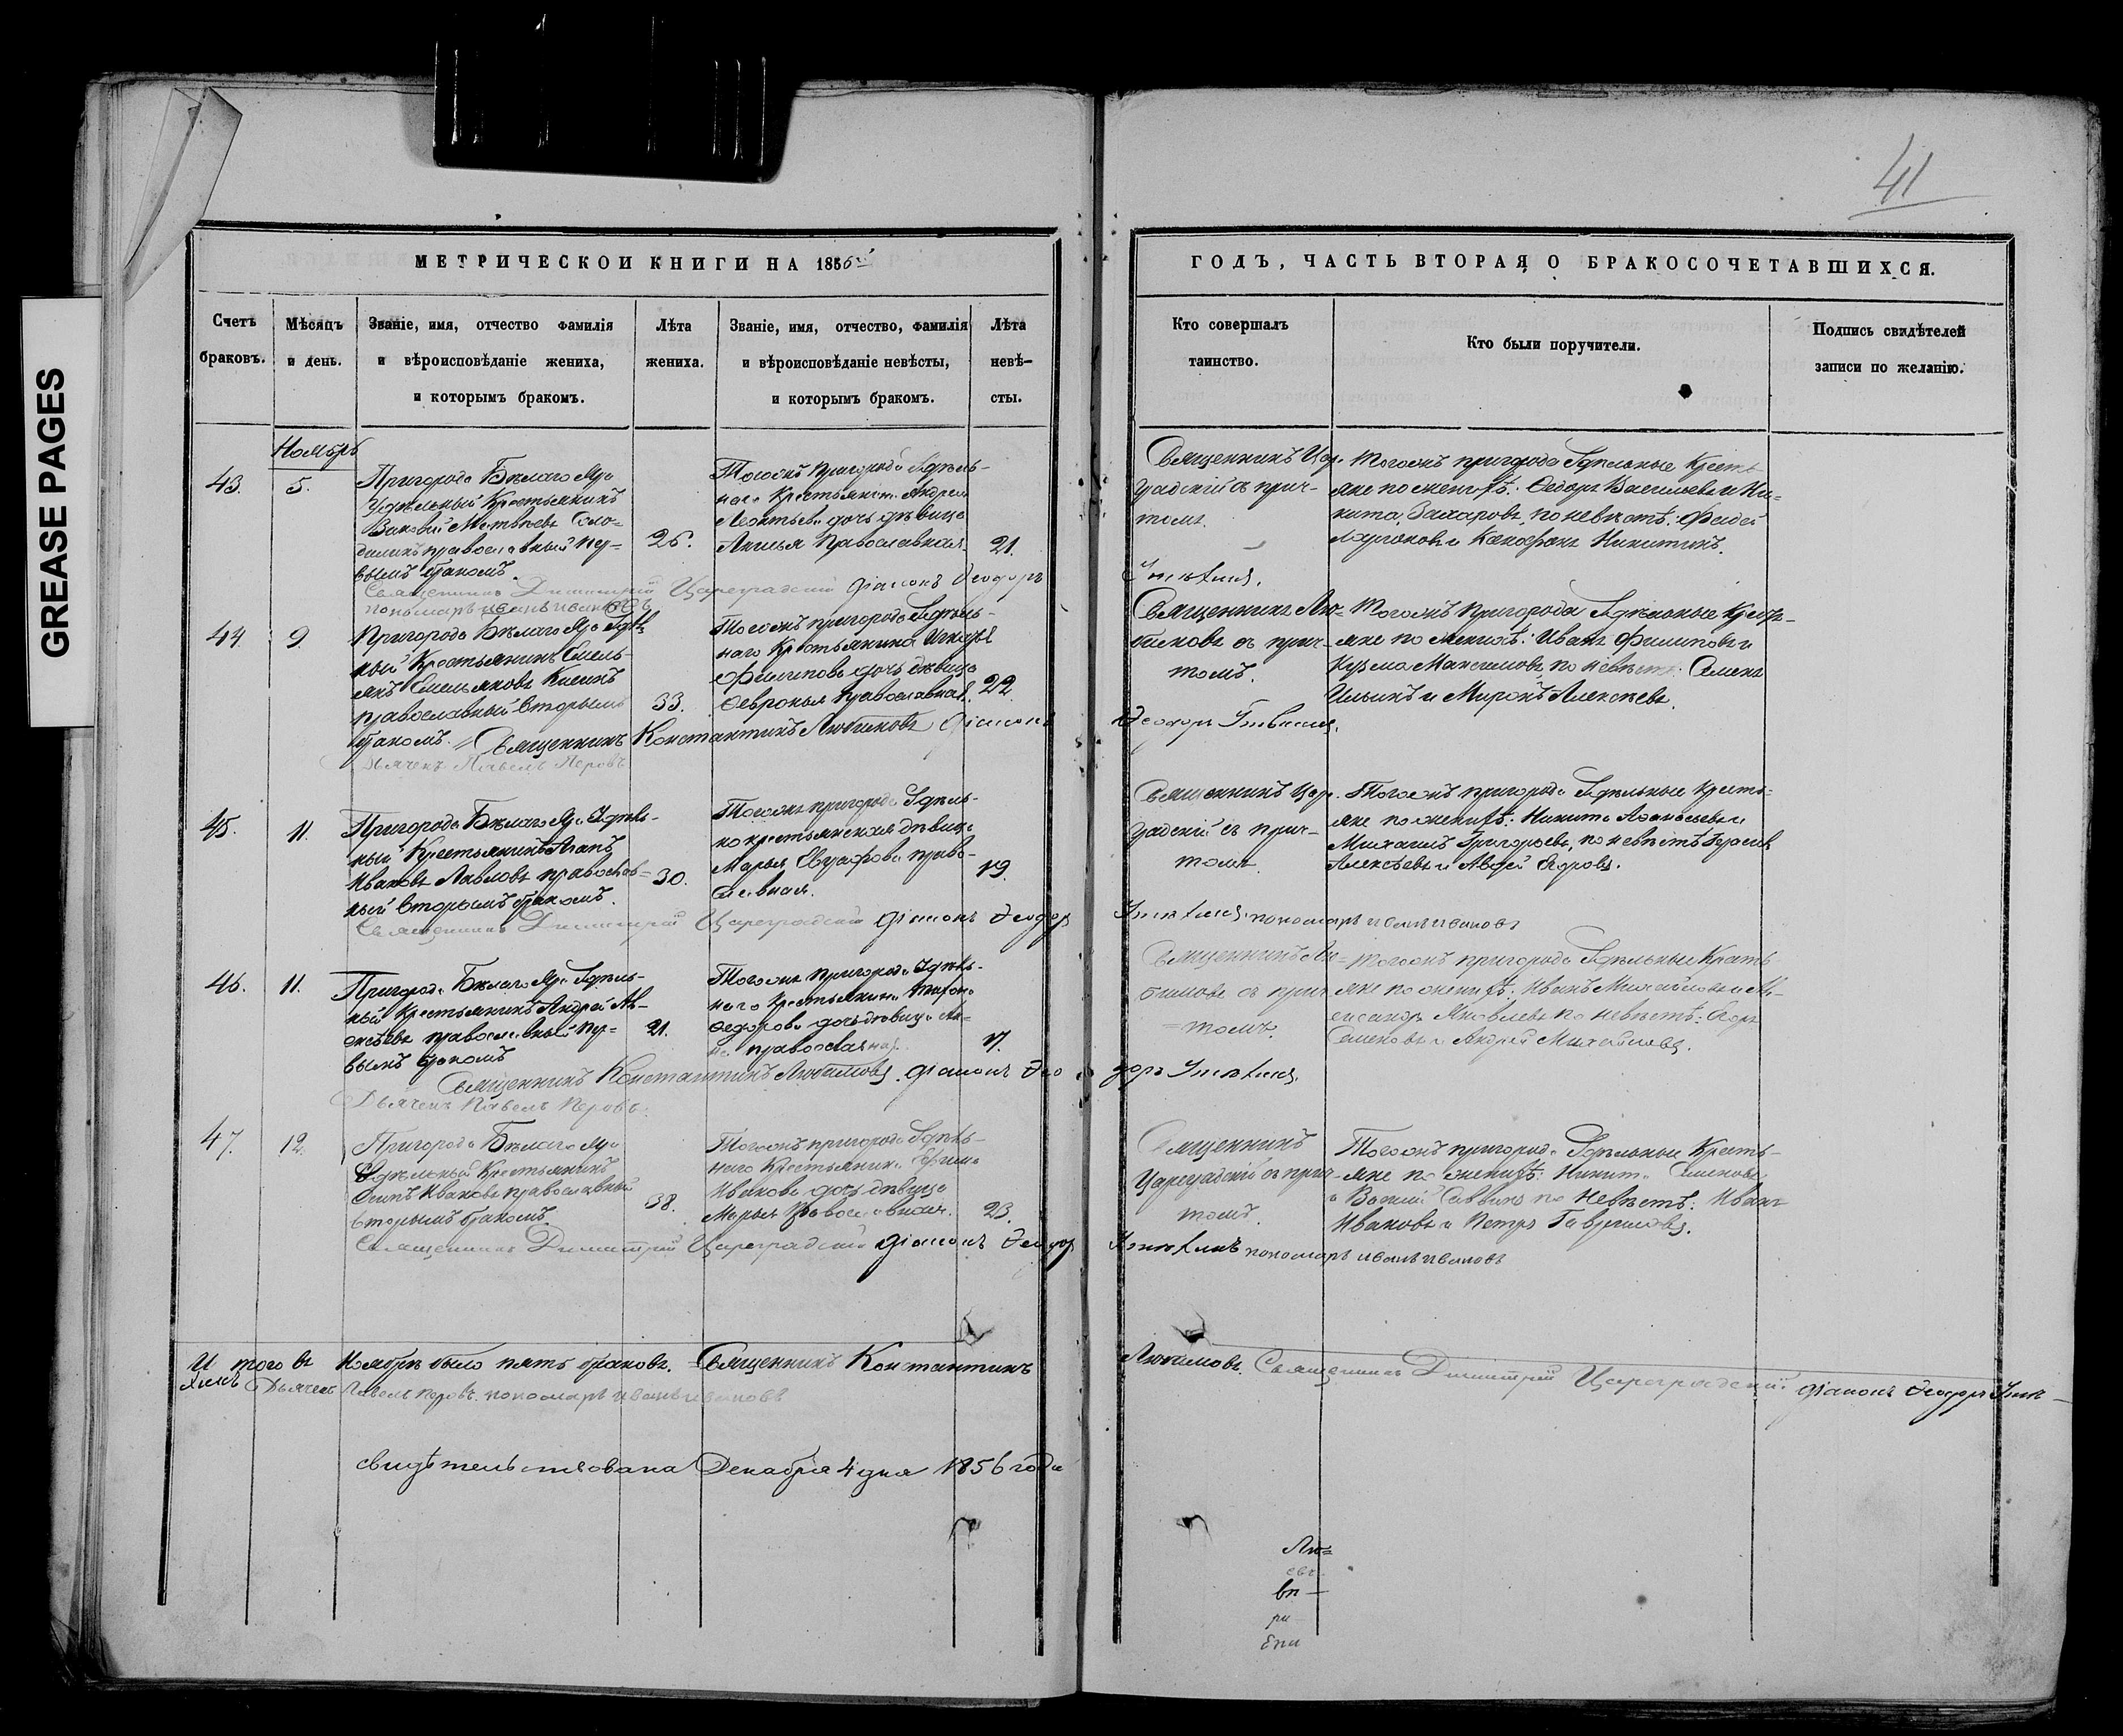 GREASE PAGES
41
МЕТРИЧЕСКОЙ КНИГИ НА 1856й
ГОДЪ, ЧАСТЬ ВТОРАЯ О БРАКОСОЧЕТАВШИХСЯ.
Счетъ
браковъ.
Мѣсяцъ
и день.
Званіе, имя, отчество фамилія
и вѣроисповѣданіе жениха,
и которымъ бракомъ.
Лѣта
жениха.
Званіе, имя, отчество, фамилія
и вѣроисповѣданіе невѣсты,
и которымъ бракомъ.
Лѣта
невѣ-
сты.
Кто совершалъ
таинство.
Кто были поручители.
Подпись свидѣтелей
записи по желанію.
Ноябрь
43.
5.
Пригорода Бѣлаго Яра
Удѣльный Крестьянинъ
Матвѣевъ
православный пер-
вымъ бракомъ.
26.
Тогожъ пригорода Удѣль-
наго Крестьянина Андрея
Леонтьева дочь дѣвица
Православная
21.
Священникъ Цар-
градскій съ прич-
томъ.
Тогожъ пригорода Удѣльные Кресть-
яне по женихѣ: Федоръ Васильевъ и Ни-
кита Захаровъ, по невѣстѣ: Фадей
и Никитинъ.
Священникъ Димитрій Цареградскій Діаконъ Феодоръ
пономарь Иванъ Ивановъ
44.
9.
Пригорода Бѣлаго Яра Удѣль-
ный Крестьянинъ Емель-
янъ Емельяновъ
православный вторымъ
бракомъ.
33.
Тогожъ пригорода Удѣль-
наго Крестьянина
Филипова дочь дѣвица
Февронья православная.
22
Священникъ Лю-
бимовъ съ прич-
томъ.
Тогожъ пригорода Удѣльные Кресть-
яне по женихѣ: Иванъ Филиповъ и
Кузьма Максимовъ, по невѣстѣ: Семенъ
Ильинъ и Миронъ Алексѣевъ.
Священникъ Константинъ Любимовъ Діаконъ
Феодоръ
Дьячекъ Павелъ Перовъ
45.
11.
Пригорода Бѣлаго Яра Удѣль-
ный Крестьянинъ Агапъ
Ивановъ Павловъ православ-
ный вторымъ бракомъ.
30.
Тогожъ пригорода Удѣль-
но крестьянская дѣвица
Марья право-
славная.
19.
Священникъ Цар-
градскій съ прич-
томъ
Тогожъ пригорода Удѣльные Кресть-
яне по женихѣ: Никита Афанасьевъ и
Михаилъ Григорьевъ, по невѣстѣ
Алексѣевъ и Авдей Егоровъ.
Священникъ Димитрій Цареградскій Діаконъ Феодоръ
пономарь Иванъ Ивановъ
46.
11.
Пригорода Бѣлаго Яра Удѣль-
ный Крестьянинъ Андрей Ал-
ексѣевъ православный пер-
вымъ бракомъ
21.
Тогожъ пригорода Удѣль-
наго Крестьянина
Федорова дочь дѣвица Ан-
на православная.
17.
Священникъ Лю-
бимовъ съ прич-
томъ.
Тогожъ пригорода Удѣльные Кресть-
яне по женихѣ: Иванъ Михайловъ и Ал-
ександръ Яковлевъ по невѣстѣ: Егоръ
Семеновъ и Андрей Михайловъ.
Священникъ Константинъ Любимовъ. Діаконъ Фео
доръ
Дьячекъ Павелъ Перовъ.
47.
12.
Пригорода Бѣлаго Яра
Удѣльный Крестьянинъ
Осипъ Ивановъ православный
вторымъ бракомъ.
38.
Тогожъ пригорода Удѣль-
наго Крестьянина Ефима
Иванова дочь дѣвица
Марья Православная.
23.
Священникъ
Цареградскій съ прич-
томъ.
Тогожъ пригорода Удѣльные Кресть-
яне по женихѣ: Никита Семеновъ
и по невѣстѣ: Иванъ
Ивановъ и Петръ Гавриловъ.
Священникъ Димитрій Цареградскій Діаконъ Феодор
пономарь Иванъ Ивановъ
И того въ Ноябрѣ было пять браковъ. Священникъ Константинъ
Любимовъ. Священникъ Димитрій Цареградскій. Діаконъ Феодоръ
Дьячекъ Павелъ Перовъ. пономарь Иванъ Ивановъ
свидѣтельствована Декабря 4 дня 1856 года